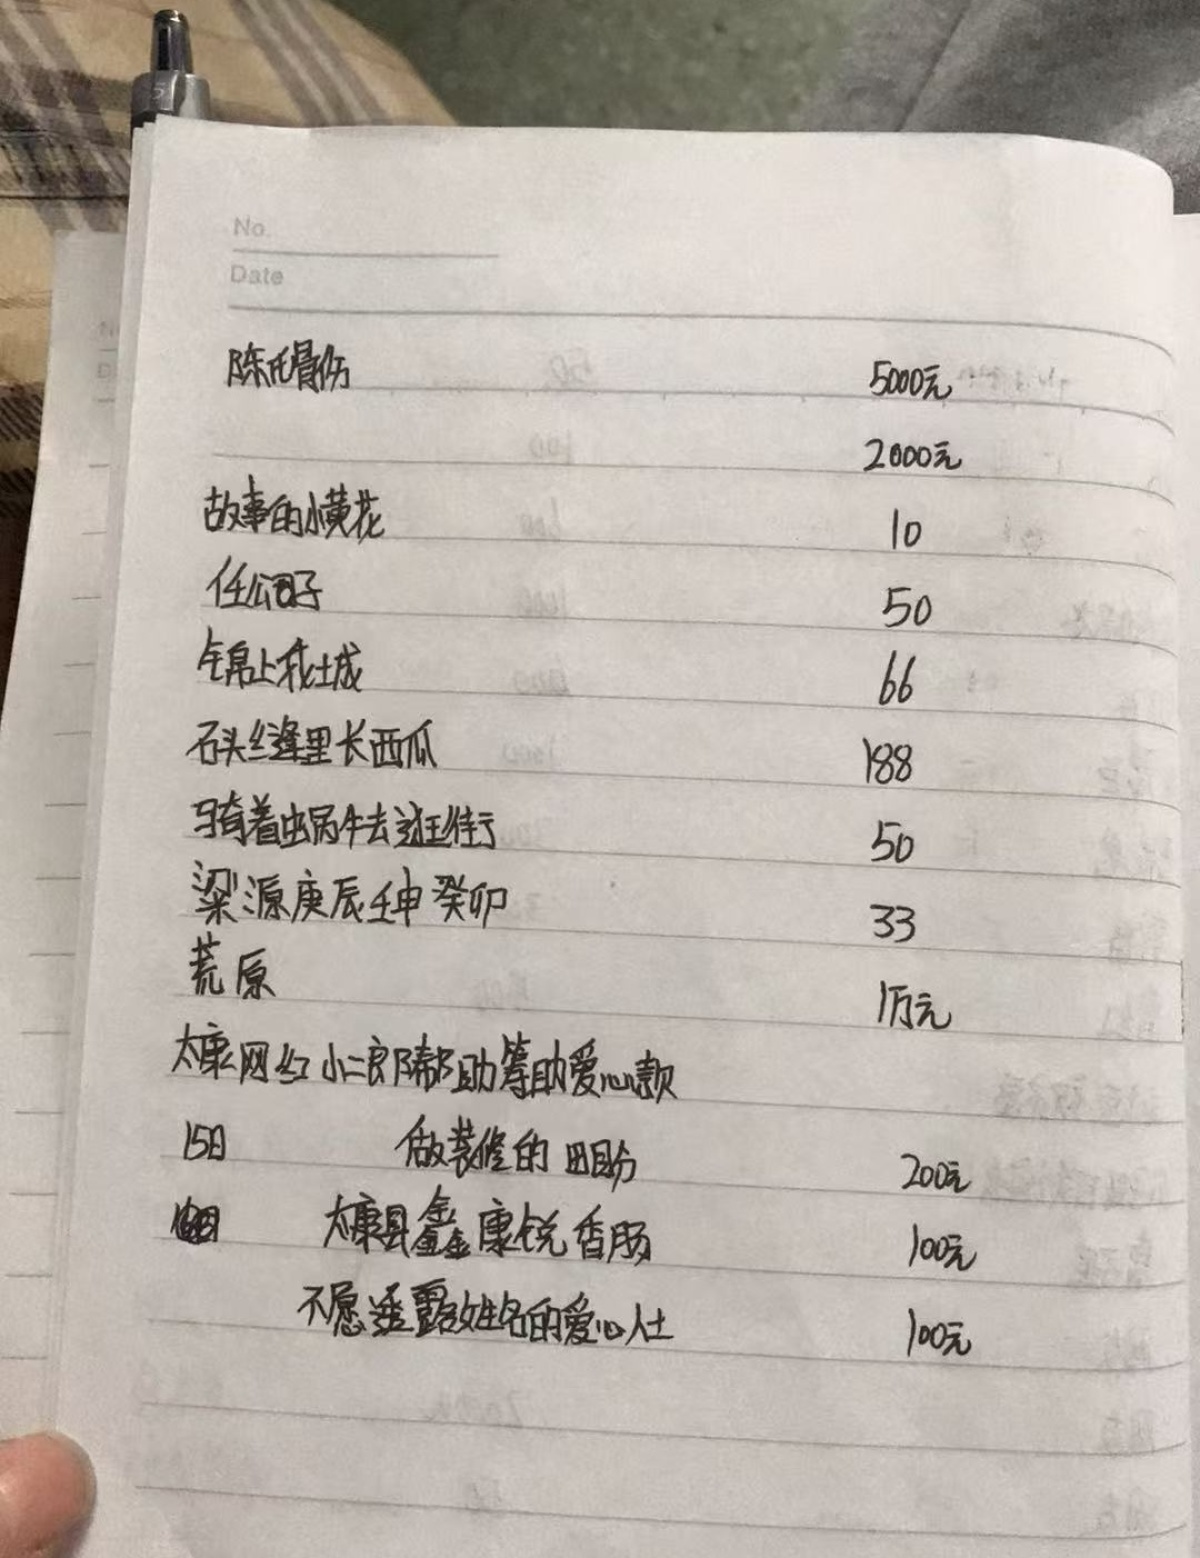 No.
Date
陈氏骨伤 5000元
2000元
故事的小黄花 10
任公子 50
锦上我城 66
石头缝里长西瓜 188
骑着蜗牛去逛街 50
梁源庚辰壬申癸卯 33
荒原 1万元
太康网红小二郎帮助筹助爱心款
15日 做装修的 200元
太康县鑫康锐香肠 100元
不愿透露姓名的爱心人士 100元